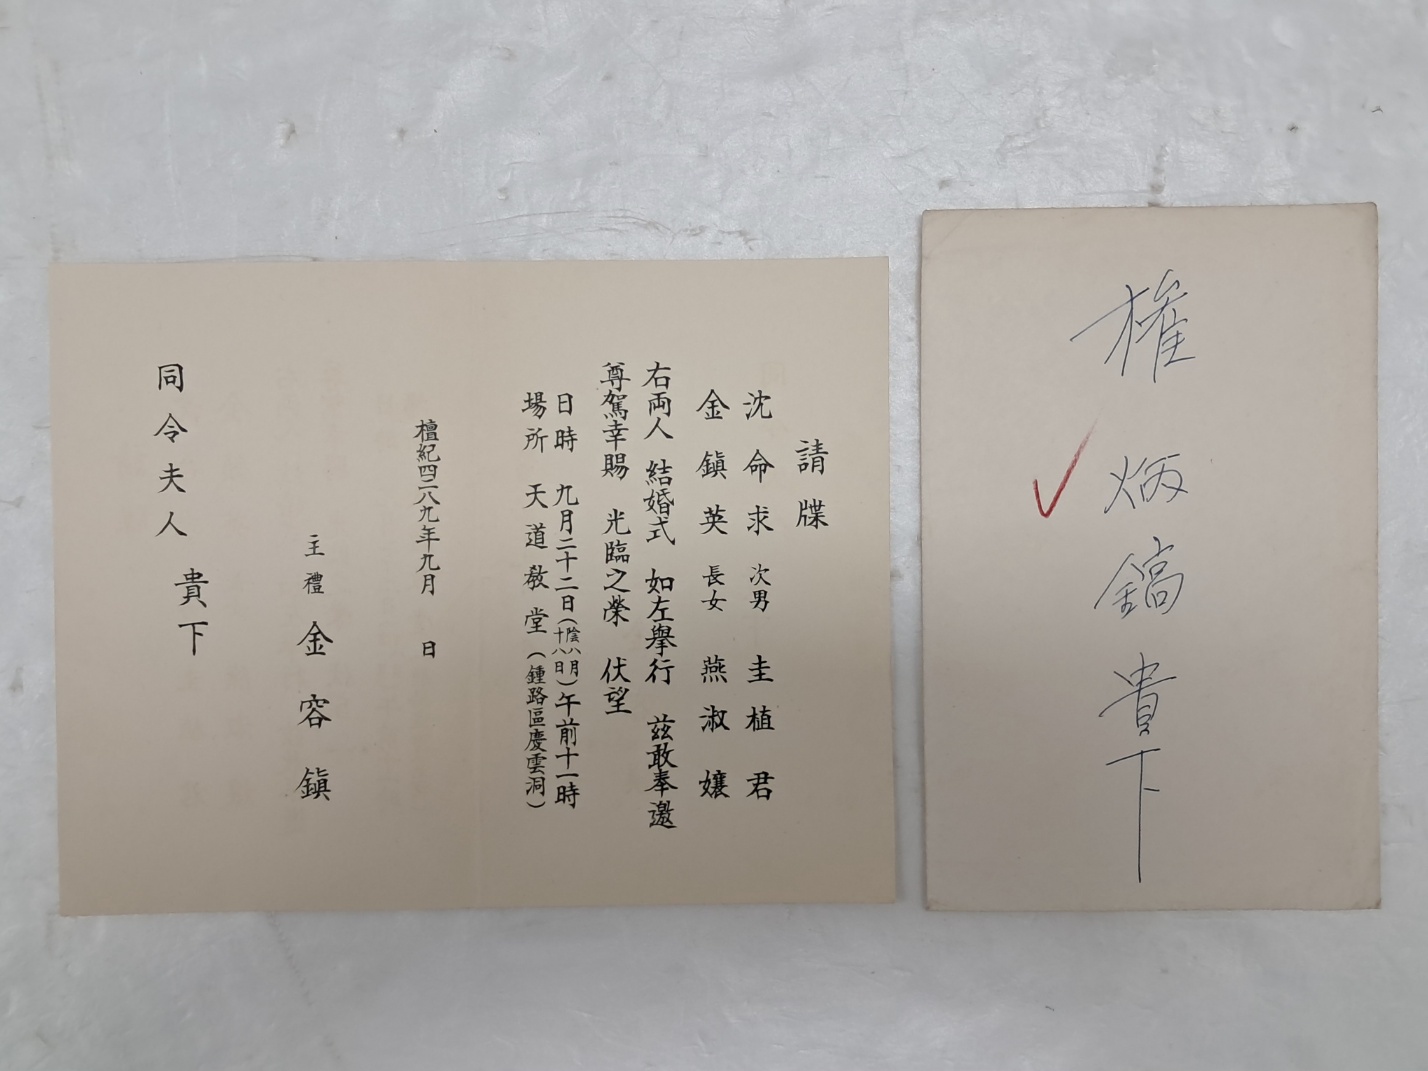 請牒
沈命求 次男 圭植君
金鎭英 長女 燕淑孃
右両人 結婚式 如左擧行 玆敢奉邀
尊駕幸賜 光臨之榮 伏望
日時 九月二十二日(陰八月十八日)午前十一時
場所 天道敎堂(鍾路區慶雲洞)
檀紀四二八九年九月 日
主禮 金容鎭
同令夫人 貴下
權炳鎬貴下